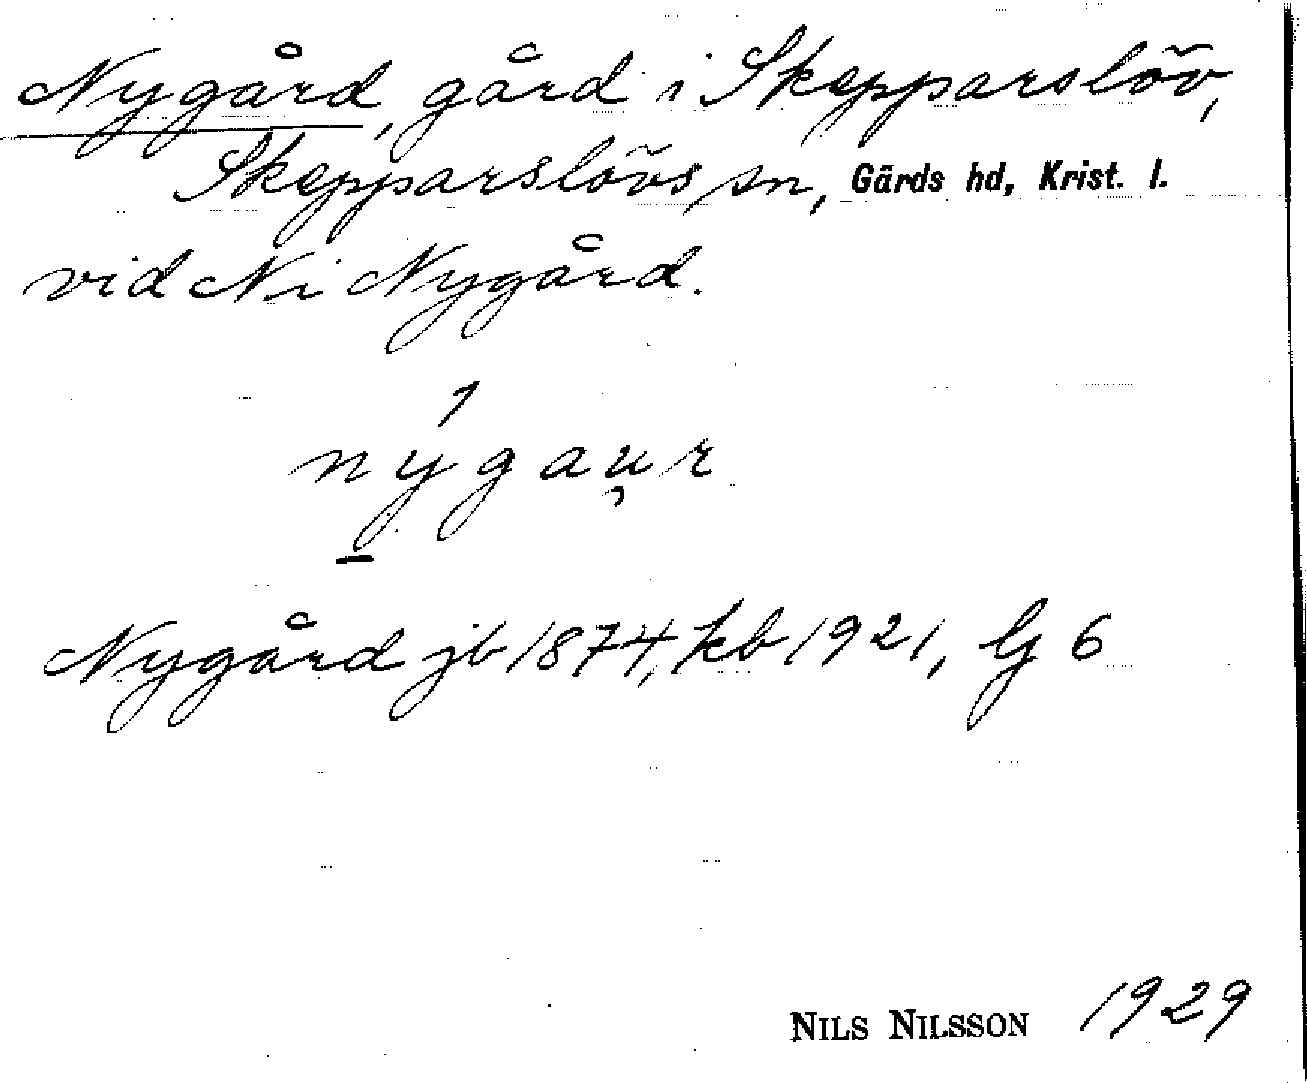 Nygård, gård i Skepparslöv,
Skepparslövs sn, Gärds hd, Krist. l.
vid N i Nygård.
nýgau̯r
Nygård jb 1874, kb 1921, Gj 6
NILS NILSSON 1929